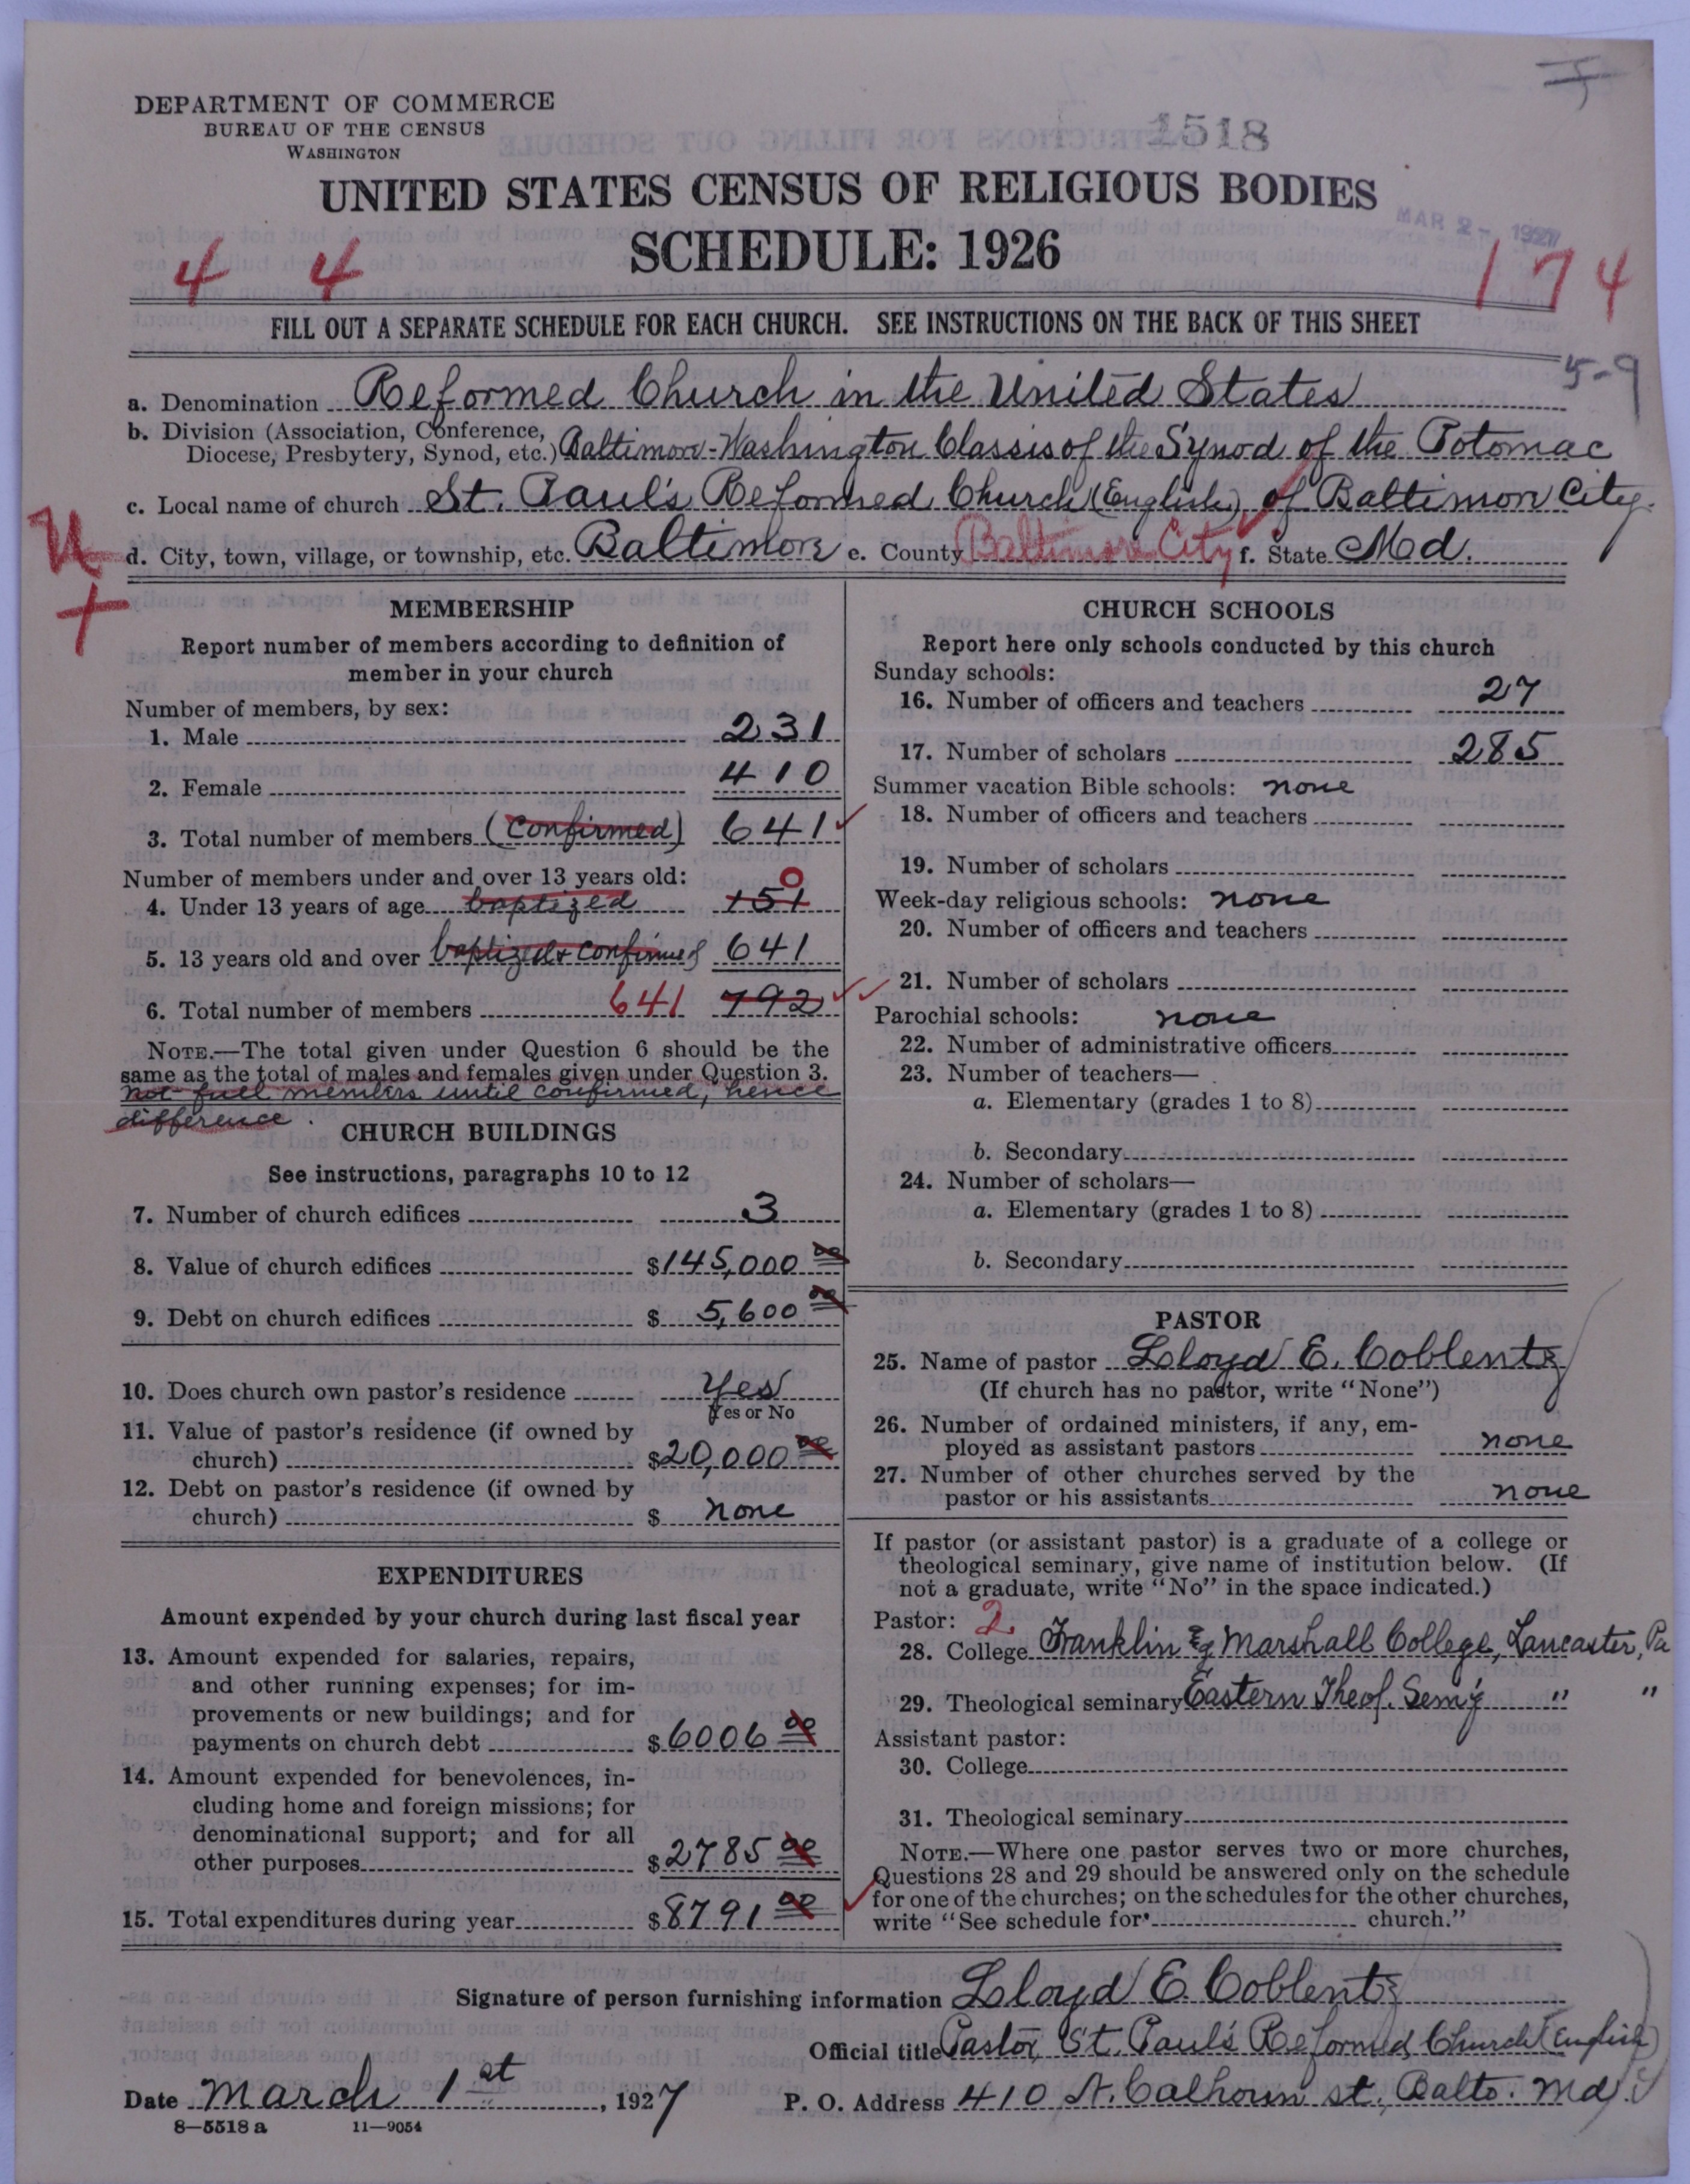 DEPARTMENT OF COMMERCE
BUREAU OF THE CENSUS
WASHINGTON
1518
UNITED STATES CENSUS OF RELIGIOUS BODIES
MAR 2 - 1927
SCHEDULE: 1926
4 4
174
FILL OUT A SEPARATE SCHEDULE FOR EACH CHURCH. SEE INSTRUCTIONS ON THE BACK OF THIS SHEET
5-9
a. Denomination Reformed Church in the United States
b. Division (Association, Conference,
Diocese, Presbytery, Synod, etc.) Baltimore-Washington Classis of the Synod of the Potomac
c. Local name of church St. Paul's Reformed Church (English) of Baltimore City.
d. City, town, village, or township, etc. Baltimore e. County Baltimore City f. State Md.
MEMBERSHIP
Report number of members according to definition of
member in your church
Number of members, by sex:
1. Male 231
2. Female 410
3. Total number of members (confirmed) 641
Number of members under and over 13 years old:
0
4. Under 13 years of age baptized 151
5. 13 years old and over baptized & confirmed 641
6. Total number of members 641 792
NOTE.—The total given under Question 6 should be the
same as the total of males and females given under Question 3.
not full members until confirmed, hence
difference.
CHURCH BUILDINGS
See instructions, paragraphs 10 to 12
7. Number of church edifices 3
8. Value of church edifices $145,000 00
9. Debt on church edifices $ 5,600 00
10. Does church own pastor's residence Yes
Yes or No
11. Value of pastor's residence (if owned by
church) $20,000 00
12. Debt on pastor's residence (if owned by
church) $ none
EXPENDITURES
Amount expended by your church during last fiscal year
13. Amount expended for salaries, repairs,
and other running expenses; for im-
provements or new buildings; and for
payments on church debt $6006 00
14. Amount expended for benevolences, in-
cluding home and foreign missions; for
denominational support; and for all
other purposes $2785 00
15. Total expenditures during year $8791 00
CHURCH SCHOOLS
Report here only schools conducted by this church
Sunday schools:
16. Number of officers and teachers 27
17. Number of scholars 285
Summer vacation Bible schools: none
18. Number of officers and teachers
19. Number of scholars
Week-day religious schools: none
20. Number of officers and teachers
21. Number of scholars
Parochial schools: none
22. Number of administrative officers
23. Number of teachers—
a. Elementary (grades 1 to 8)
b. Secondary
24. Number of scholars—
a. Elementary (grades 1 to 8)
b. Secondary
PASTOR
25. Name of pastor Lloyd E. Coblentz
(If church has no pastor, write "None")
26. Number of ordained ministers, if any, em-
ployed as assistant pastors none
27. Number of other churches served by the
pastor or his assistants none
If pastor (or assistant pastor) is a graduate of a college or
theological seminary, give name of institution below. (If
not a graduate, write "No" in the space indicated.)
Pastor: 2
28. College Franklin & Marshall College, Lancaster, Pa
29. Theological seminary Eastern Theol. Sem'y " "
Assistant pastor:
30. College
31. Theological seminary
NOTE.—Where one pastor serves two or more churches,
Questions 28 and 29 should be answered only on the schedule
for one of the churches; on the schedules for the other churches,
write "See schedule for church."
Signature of person furnishing information Lloyd E. Coblentz
Official title Pastor, St. Paul's Reformed Church (English)
Date March 1st, 1927 P. O. Address 410 N. Calhoun st., Balto. Md.
8—5518 a 11—9054